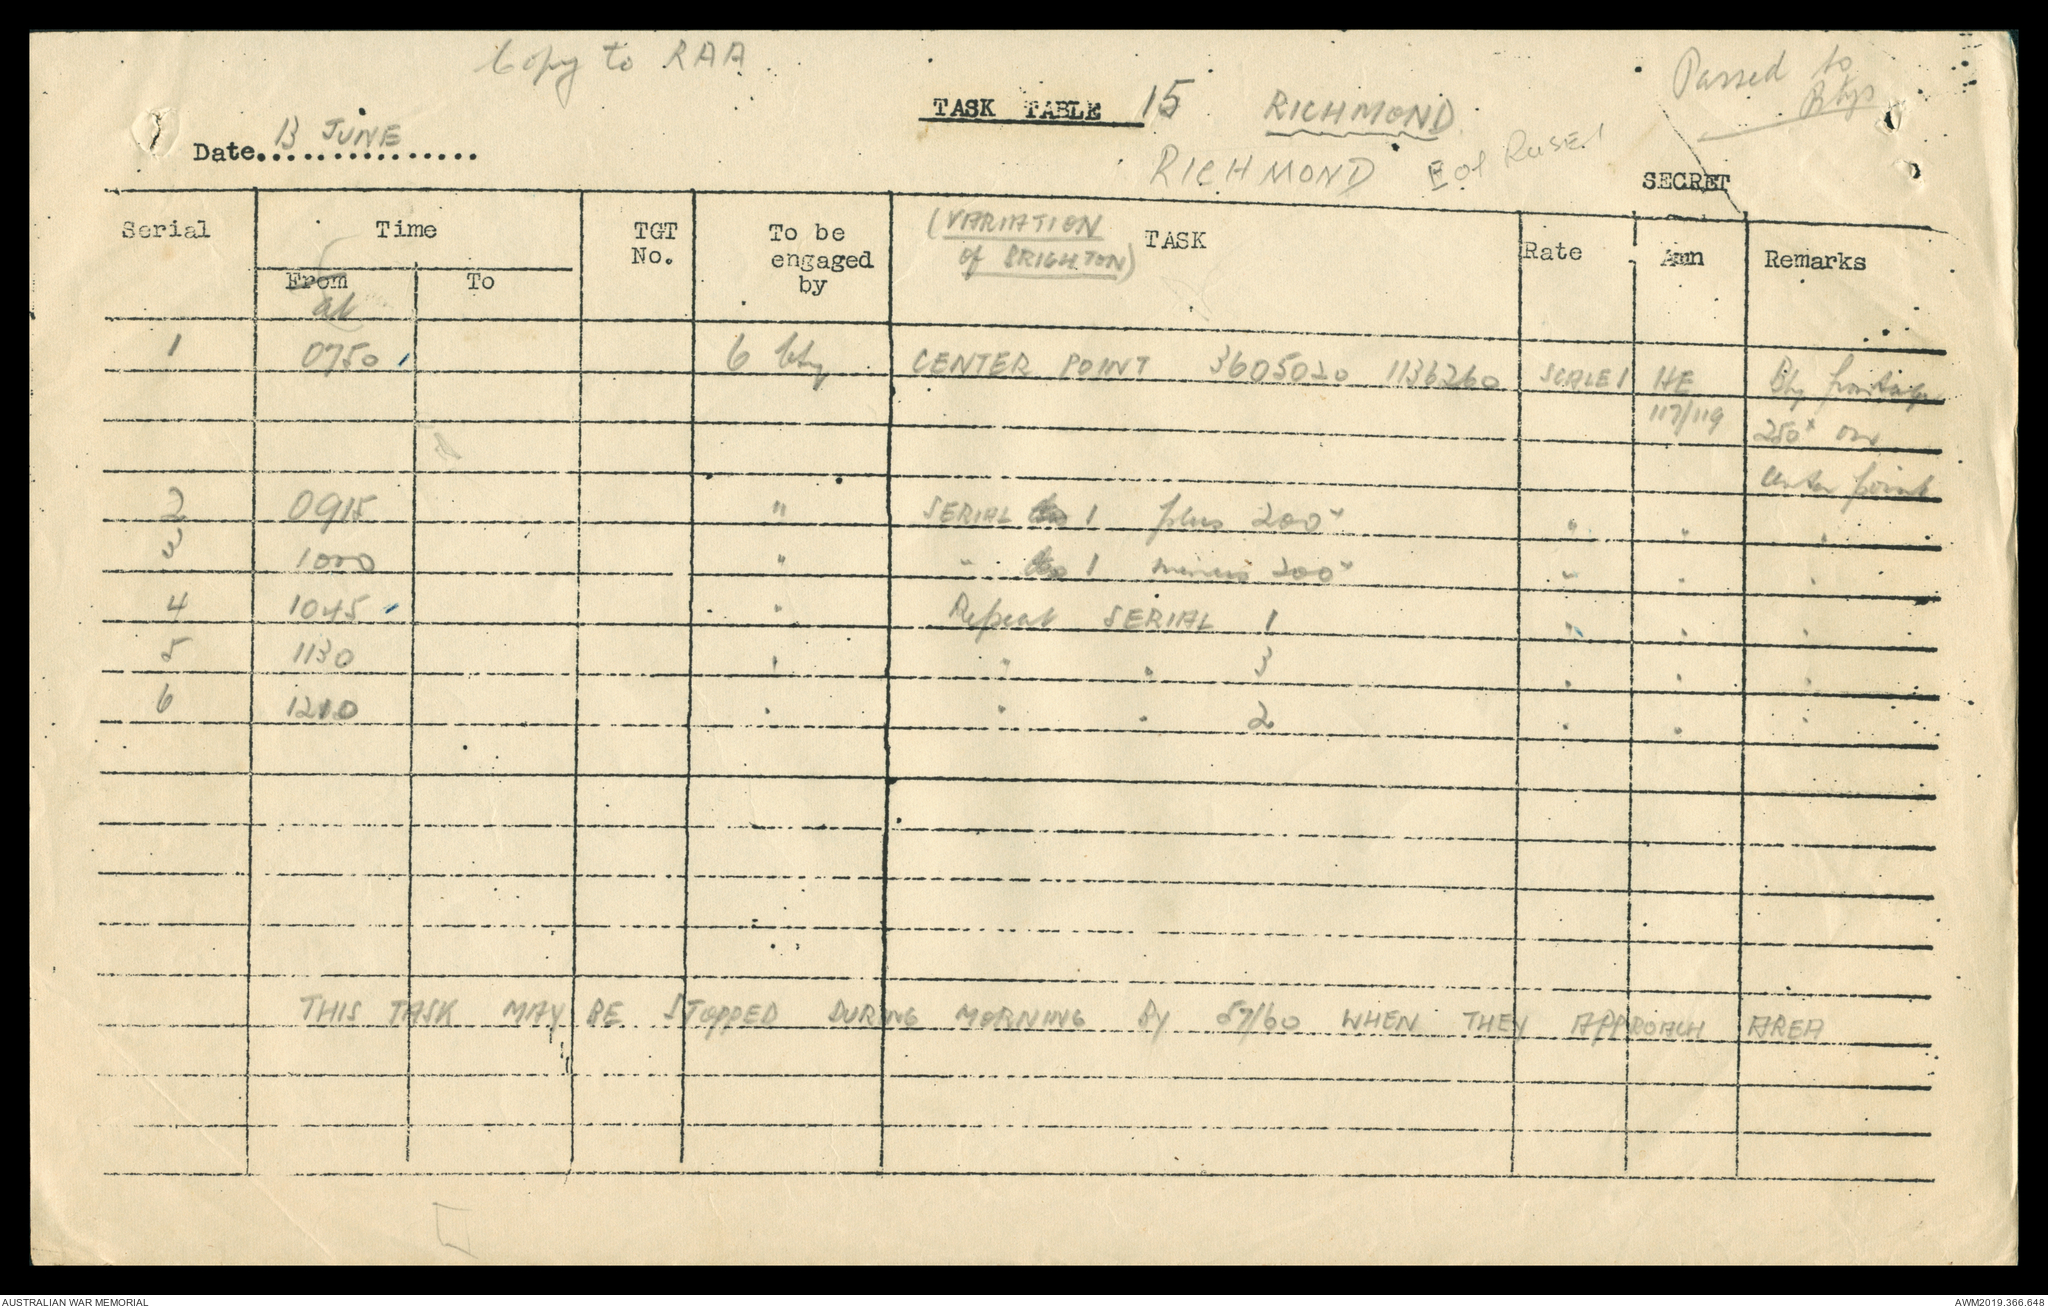 Copy to RAA
Passed to
Btys
TASK TABLE 15 RICHMOND
Date 13 JUNE
RICHMOND E of
SECRET
Serial Time TGT No. To be engaged by (VARIATION of BRIGHTON) TASK Rate Amn Remarks
From To
at
1 0750 6 bty CENTER POINT 3605020 1136260 SCALE 1 HE Bty frontage
117/119 250x on
center point
2 0915 " SERIAL 1 plus 200x " " "
3 1000 " " 1 minus 200x " " "
4 1045 " Repeat SERIAL 1 " " "
5 1130 " " " 3 " " "
6 1210 " " " 2 " " "
THIS TASK MAY BE STOPPED DURING MORNING BY 57/60 WHEN THEY APPROACH AREA
AUSTRALIAN WAR MEMORIAL
AWM2019.366.648